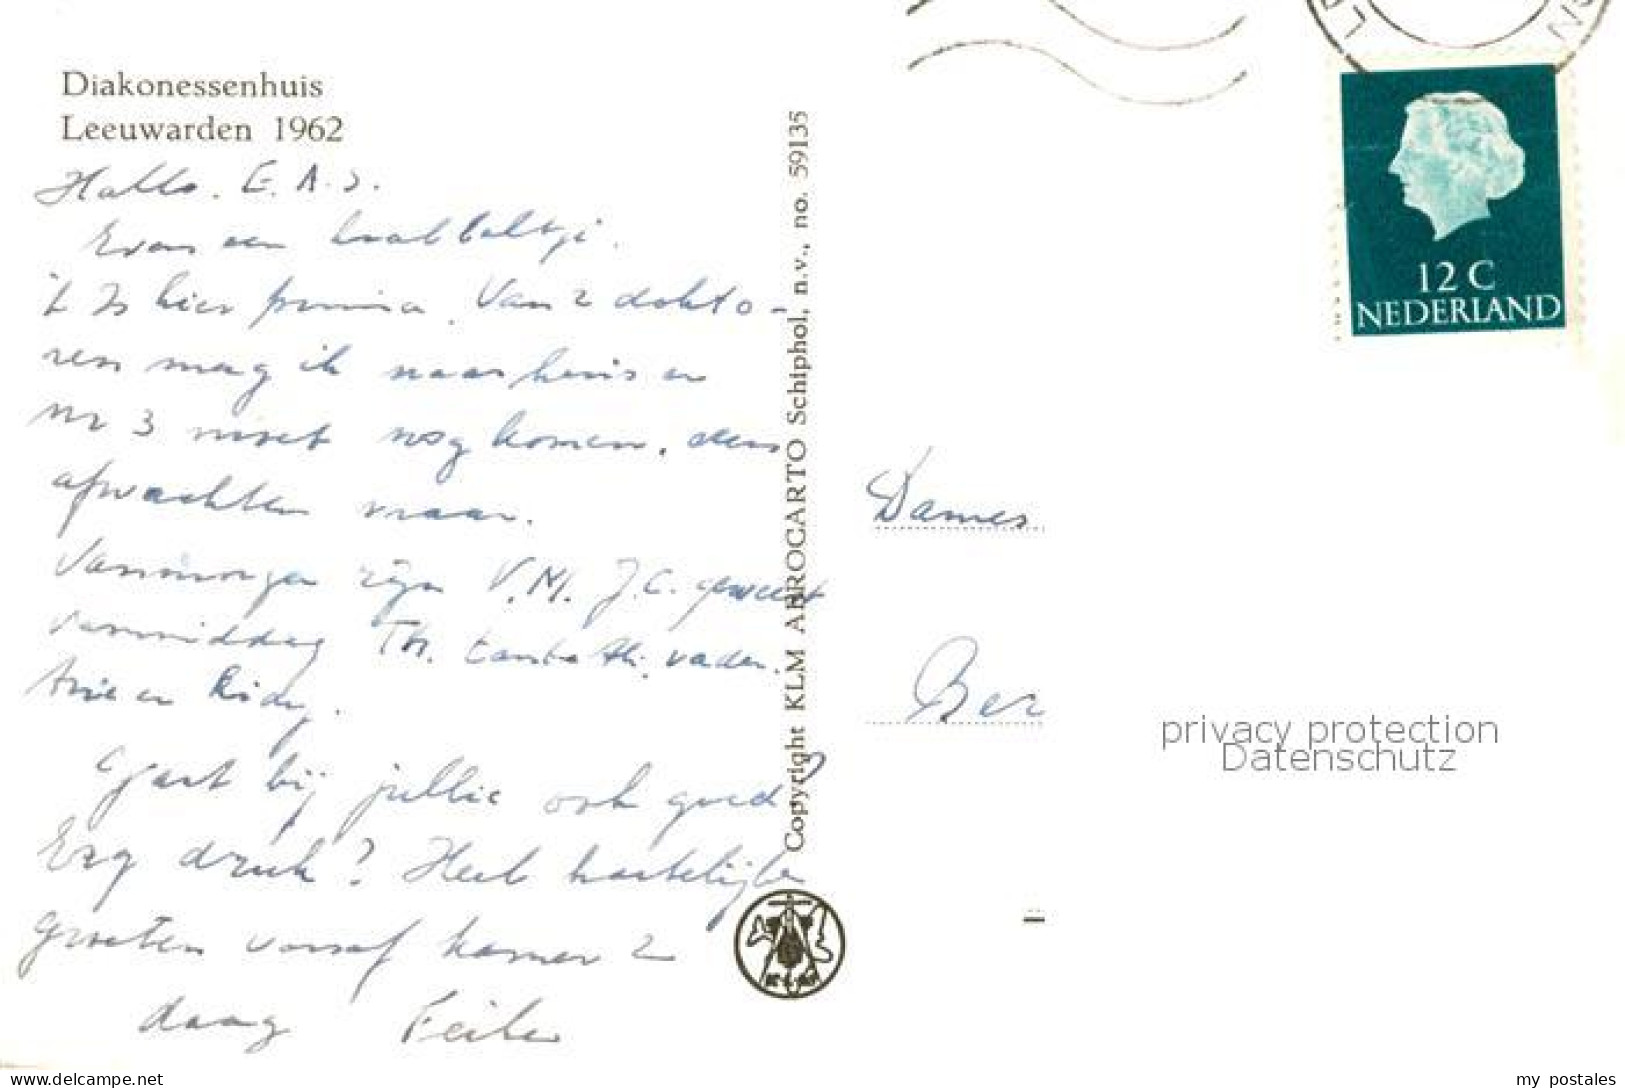 Diakonessenhuis
Leeuwarden 1962
Hallo. E. A. S.
Even een krabbeltje.
't Is hier prima. Van 2 dokto-
ren mag ik naar huis en
nr 3 moet nog komen. dus
afwachten maar.
Vanmorgen zijn V. M. J. C. geweest
vanmiddag Th. tante Ali, vader.
Arie en
Gaat bij jullie ook goed?
Erg druk? Heel hartelijke
groeten vanaf kamer 2
daag
Copyright KLM AEROCARTO Schiphol, n.v., no. 59135
12 C
NEDERLAND
Dames
Ber
privacy protection
Datenschutz
www.delcampe.net
my_postales